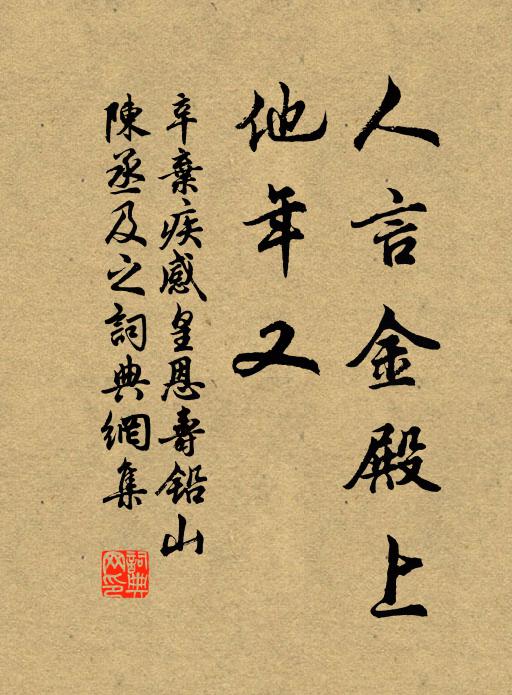 人言金殿上
他年又
辛棄疾感皇恩壽鉛山
陳丞及之詞典網集
詞典
网印